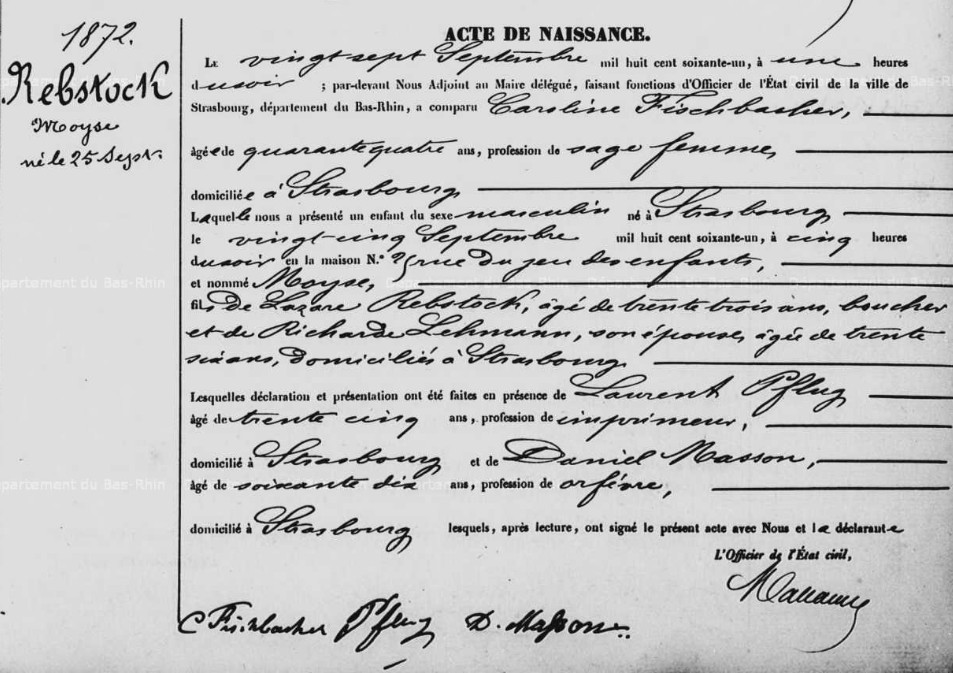 1872.
Rebstock
Moyse
né le 25 Sept.
ACTE DE NAISSANCE.
Le vingt sept Septembre mil huit cent soixante-un, à une heures
du soir ; par-devant Nous Adjoint au Maire délégué, faisant fonctions d'Officier de l'État civil de la ville de
Strasbourg, département du Bas-Rhin, a comparu Caroline Fischbacher,
âgée de quarante quatre ans, profession de sage femme,
domiciliée à Strasbourg
Laquelle nous a présenté un enfant du sexe masculin né à Strasbourg
le vingt-cinq Septembre mil huit cent soixante-un, à cinq heures
du soir en la maison N.° rue du jeu des enfants,
et nommé Moyse,
fils de Lazare Rebstock, âgé de trente trois ans, boucher
et de Richarde Lehmann, son épouse, âgée de trente
six ans, domiciliés à Strasbourg
Lesquelles déclaration et présentation ont été faites en présence de Laurent Pflug
âgé de trente cinq ans, profession de imprimeur,
domicilié à Strasbourg et de Daniel Masson,
âgé de soixante dix ans, profession de orfévre,
domicilié à Strasbourg lesquels, après lecture, ont signé le présent acte avec Nous et la déclarante
L'Officier de l'État civil,
C Fischbacher Pflug D. Masson
département du Bas-Rhin